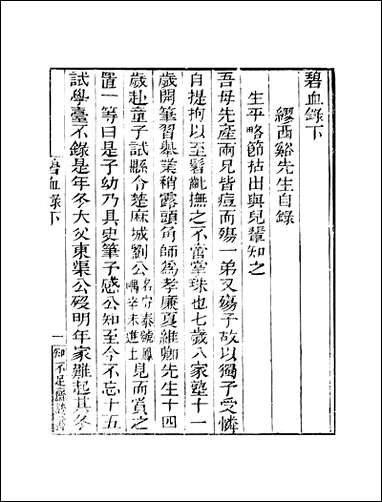 碧血錄下
繆西谿先生自錄
生平略節拈出與兒輩知之
吾母先產兩兄皆痘而殤一弟又殤予故以獨子受憐
自提拘以至髫齔撫之不啻掌珠也七歲入家塾十一
歲開筆習舉業稍露頭角師為孝廉夏維卿先生十四
歲赴童子試縣令楚麻城劉公名守泰號鳳嵎辛未進士見而賞之
置一等曰是子幼乃具史筆予感公知至今不忘十五
試學臺不錄是年冬大父東渠公歿明年家難起其冬
碧血錄下
一
知不足齋叢書